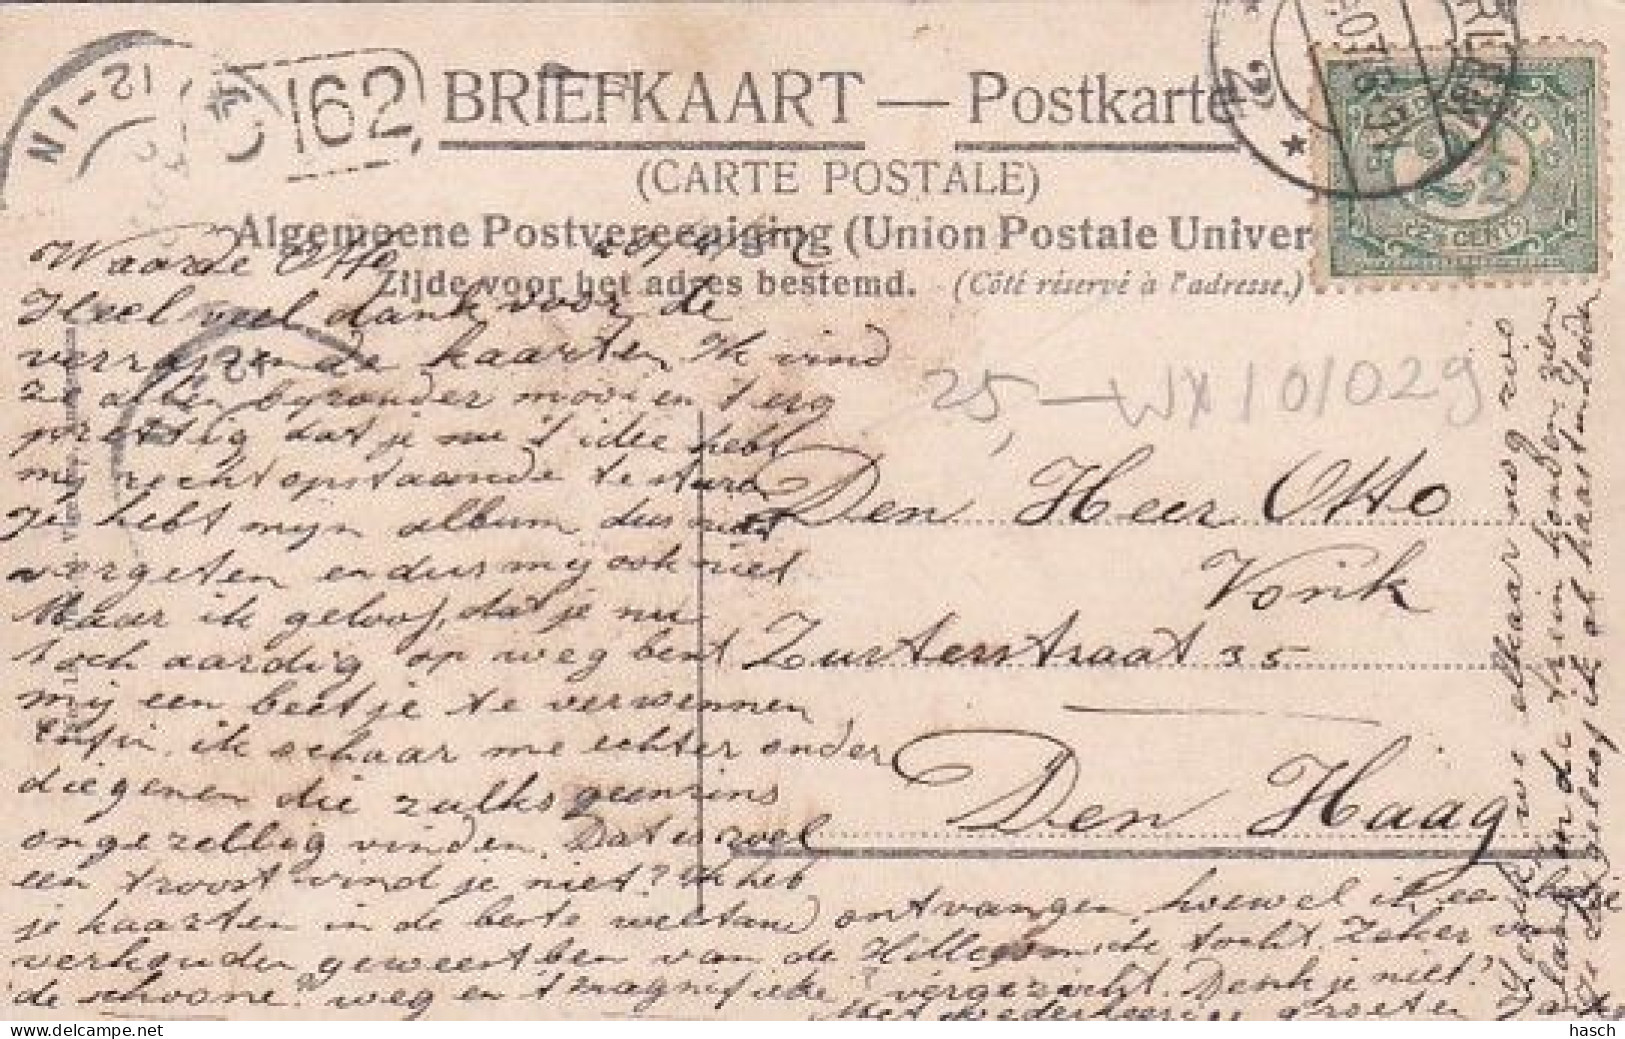 12-1N
162
BRIEFKAART — Postkarte
(CARTE POSTALE)
Algemeene Postvereeniging (Union Postale Univer
Zijde voor het adres bestemd. (Côté réservé à l'adresse.)
2½
(2½ CENT)
25,- WX 101029
Waarde Otto
Heel veel dank voor de
verrassende kaarten. Ik vind
ze allen byzonder mooi en 't erg
prettig dat je nu 't idee hebt
mij rechtopstaande te sturen
Je hebt mijn album dus niet
vergeten en dus mij ook niet
Maar ik geloof, dat je nu
toch aardig op weg bent
mij een beetje te verwennen
Enfin, ik schaar me echter onder
diegenen die zulks geenszins
ongezellig vinden. Dat is wel
een troost vind je niet? Ik heb
je kaarten in de beste welstand ontvangen, hoewel ik een beetje
verkouden geweest ben van de Hillegomsche tocht. Zeker van
de schoone weg en 't magnifieke vergezicht. Denk je niet?
Met wederkeerige groeten
Den Heer Otto
Vonk
Zusterstraat 35
Den Haag
we elkaar nog zoo
in de trein zouden zien
geloof ik al haast
hasch